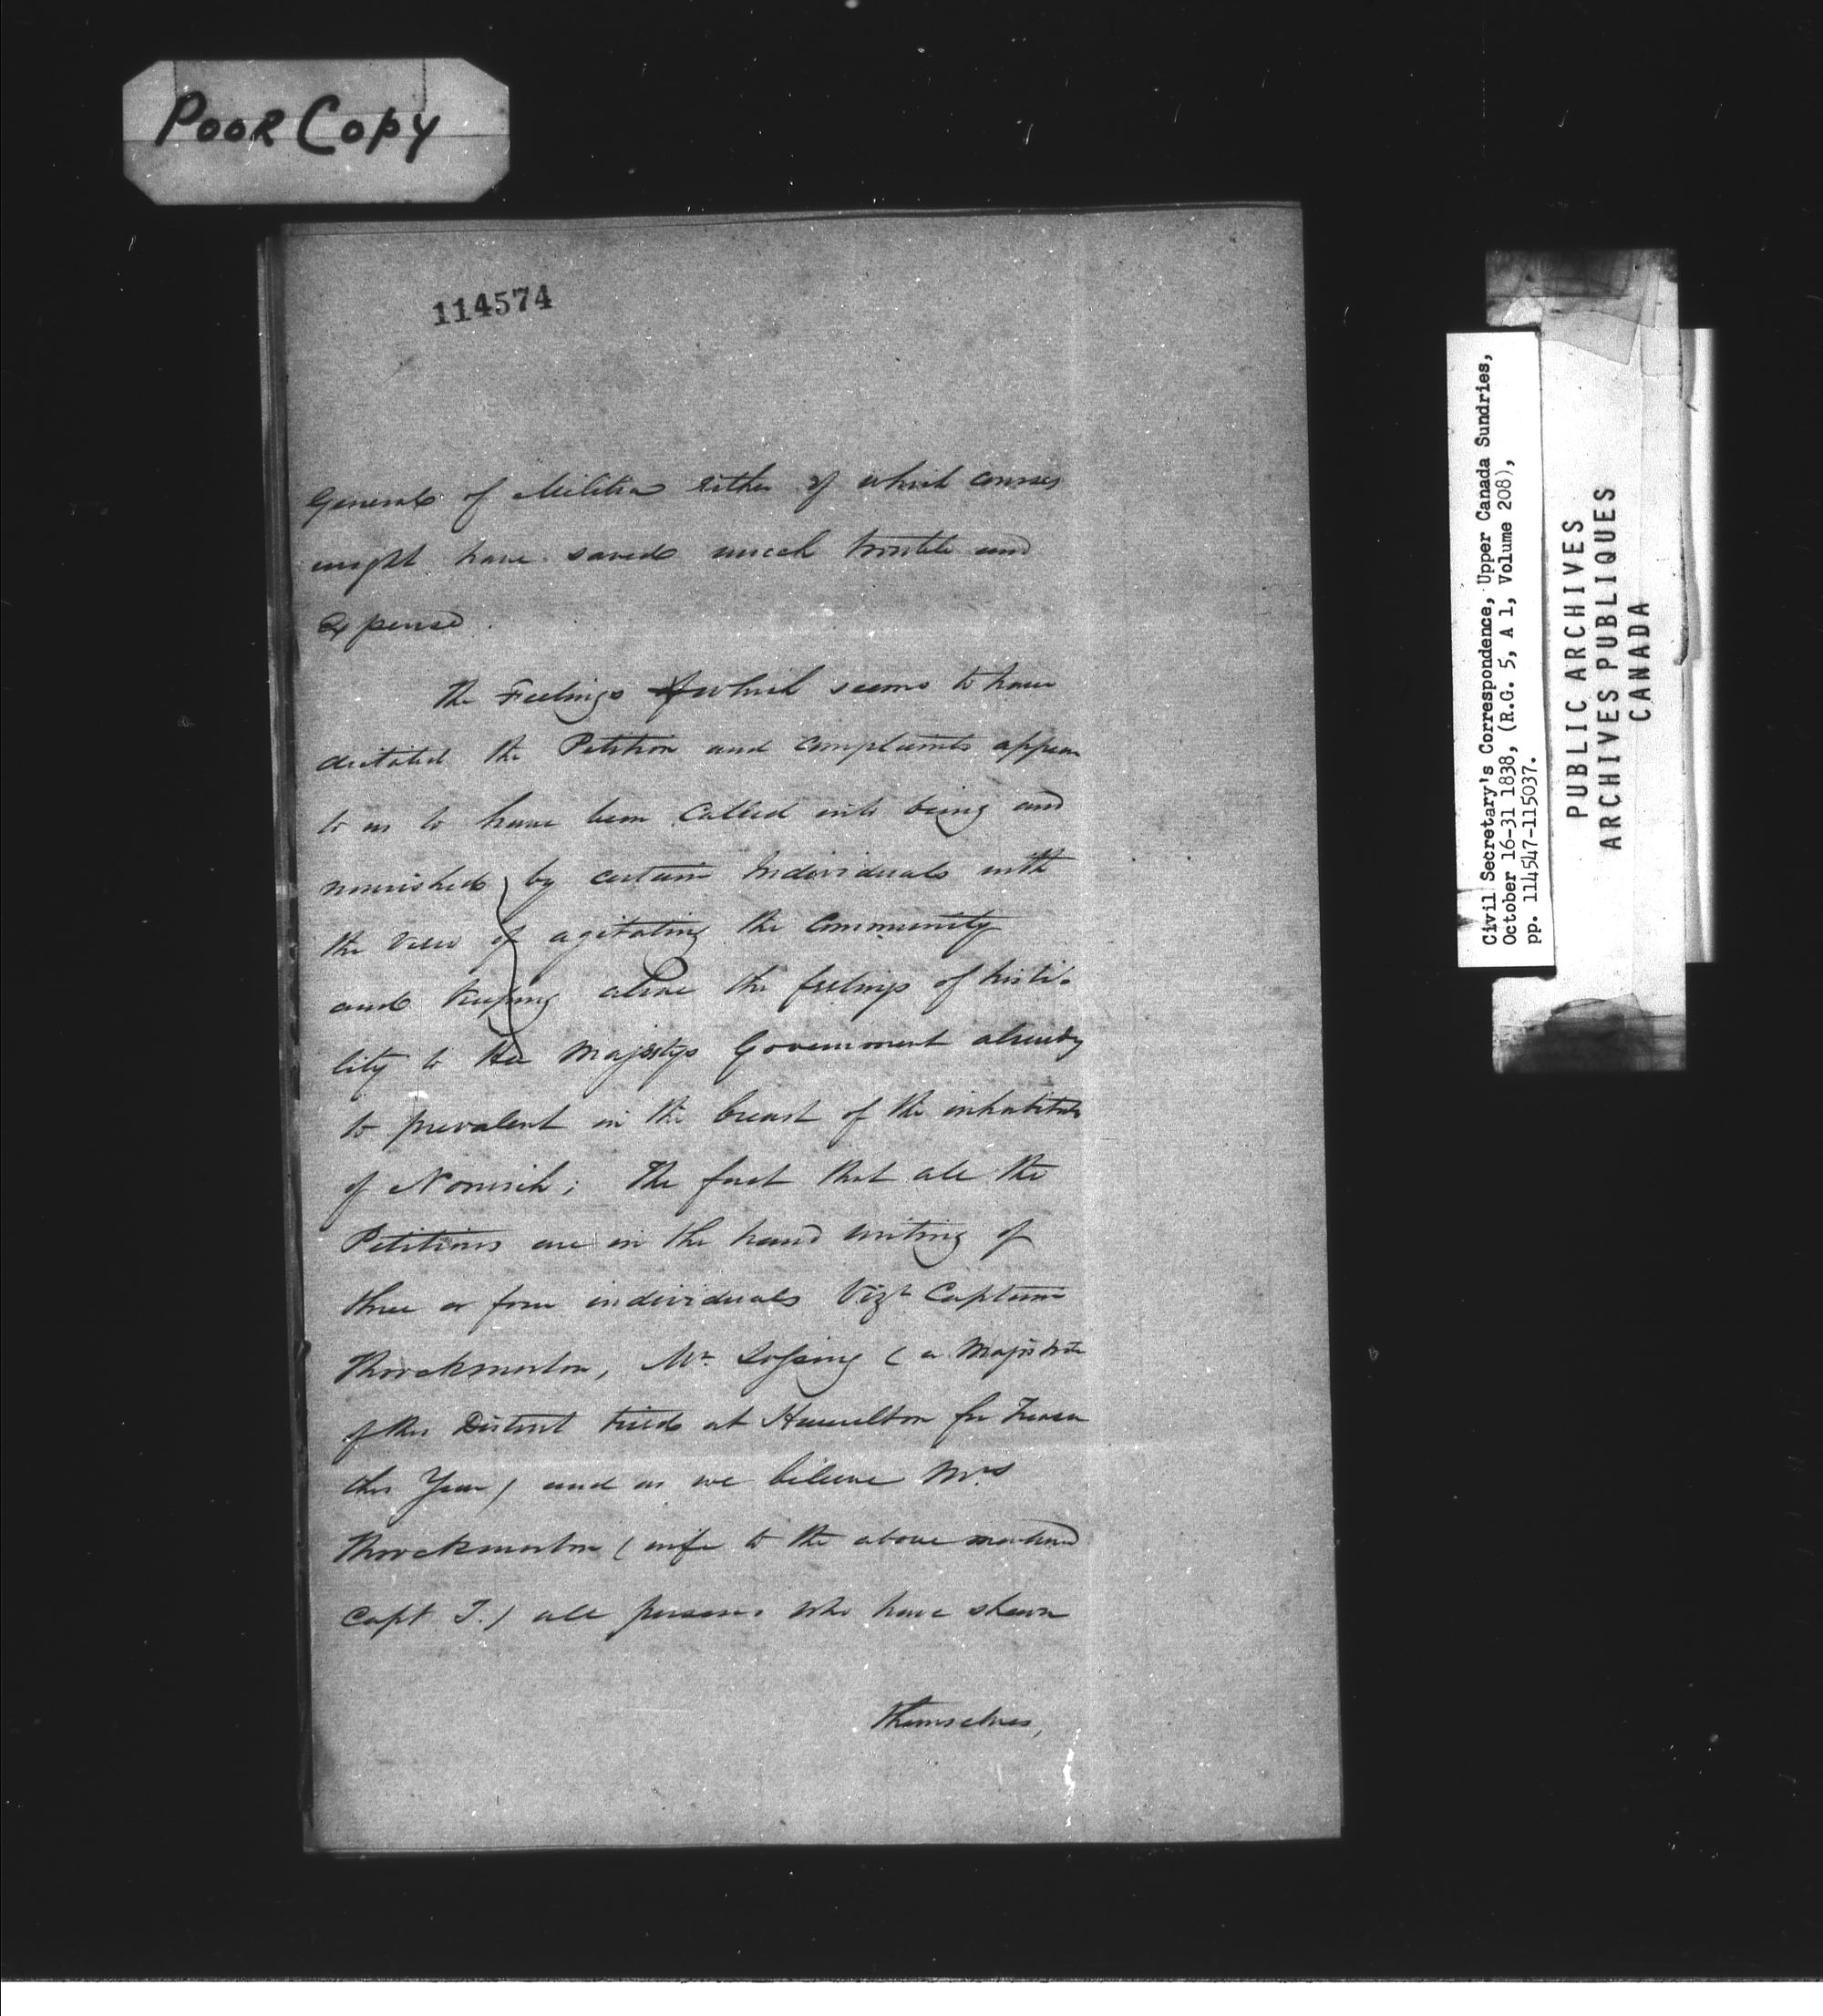 POOR COPY
114574
General of Militia either of which courses
might have saved much trouble and
Expense.
The Feelings which seems to have
dictated the Petition and complaints appear
to us to have been Called into being and
nourished by certain Individuals with
the view of agitating the Community
and keeping alive the feelings of hosti-
lity to Her Majestys Government already
to prevalent in the breast of the inhabitants
of Norwich; The fact that all the
Petitions are in the hand writing of
three or four individuals Vizt Captain
Throckmorton, Mr. Lossing (a Magistrate
of this District tried at Hamilton for Treason
this Year) and as we believe Mrs
Throckmorton (wife to the above mentioned
Capt T.) all persons who have shewn
themselves,
Civil Secretary's Correspondence, Upper Canada Sundries,
October 16-31 1838, (R.G. 5, A 1, Volume 208),
pp. 114547-115037.
PUBLIC ARCHIVES
ARCHIVES PUBLIQUES
CANADA